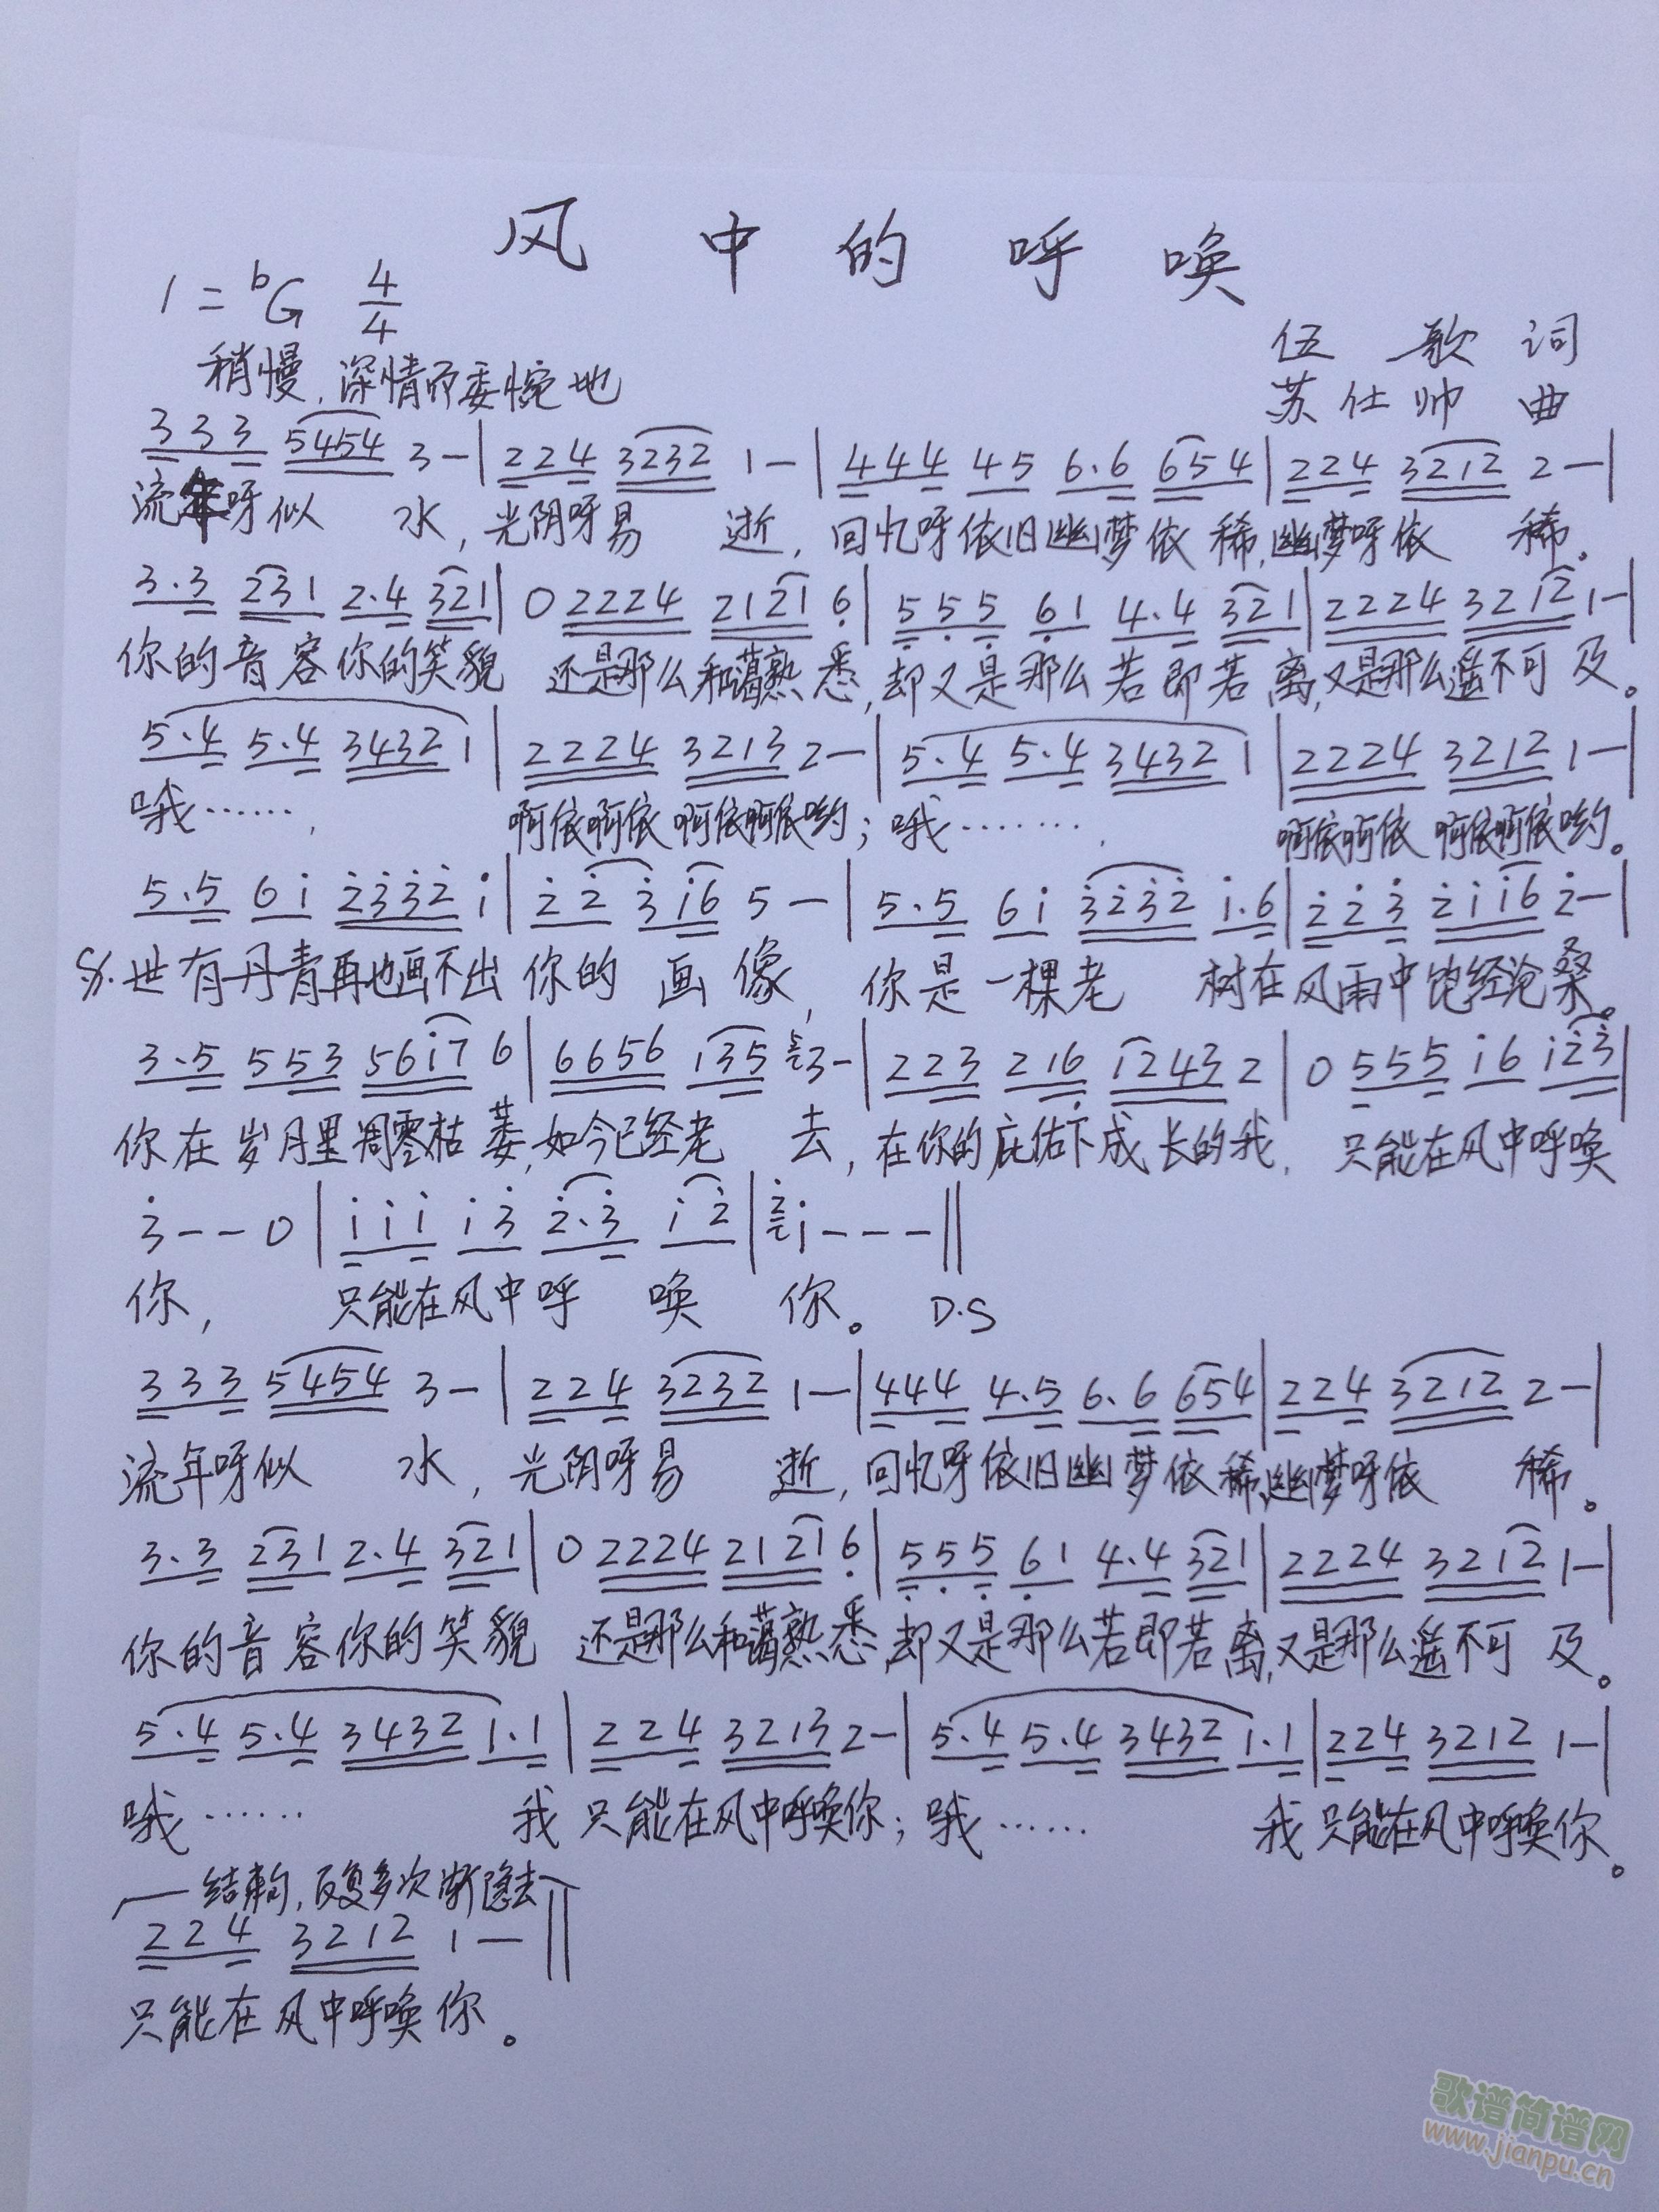 风中的呼唤
1=♭G 4/4
伍歌词
稍慢,深情而委惋地
苏仕帅曲
3 3 3 5454 3 - | 2 2 4 3232 1 - | 4 4 4 4 5 6.6 654 | 2 2 4 3212 2 - |
流年呀似 水,光阴呀易 逝,回忆呀依旧幽梦依稀,幽梦呀依 稀。
3.3 231 2.4 321 | 0 2224 2121 6̣ | 5̣ 5̣ 5̣ 6̣1 4.4 321 | 2224 3212 1 - |
你的音容你的笑貌 还是那么和蔼熟悉,却又是那么若即若离,又是那么遥不可及。
5.4 5.4 3432 1 | 2224 3213 2 - | 5.4 5.4 3432 1 | 2224 3212 1 - |
哦……, 啊依啊依啊依啊依哟;哦……, 啊依啊依啊依啊依哟。
5.5 6i 2̇3̇3̇2̇ i | 2̇ 2̇ 3̇ i6 5 - | 5.5 6i 3̇2̇3̇2̇ i.6 | 2̇ 2̇ 3̇ 2̇ii6 2̇ - |
世有丹青再也画不出你的画像,你是一棵老 树在风雨中饱经沧桑。
3.5 553 56i7 6 | 6656 i35 3 - | 223 216̣ 1243 2 | 0 555 i6 i2̇3̇ |
你在岁月里凋零枯萎,如今已经老 去,在你的庇佑下成长的我, 只能在风中呼唤
3̇ - - 0 | i i i i3̇ 2̇.3̇ i2̇ | 2̇ i - - - ||
你, 只能在风中呼 唤 你。 D.S
3 3 3 5454 3 - | 2 2 4 3232 1 - | 444 4.5 6.6 654 | 2 2 4 3212 2 - |
流年呀似 水,光阴呀易 逝,回忆呀依旧幽梦依稀,幽梦呀依 稀。
3.3 231 2.4 321 | 0 2224 2121 6̣ | 5̣ 5̣ 5̣ 6̣1 4.4 321 | 2224 3212 1 - |
你的音容你的笑貌 还是那么和蔼熟悉,却又是那么若即若离,又是那么遥不可及。
5.4 5.4 3432 1.1 | 2 2 4 3213 2 - | 5.4 5.4 3432 1.1 | 224 3212 1 - |
哦…… 我只能在风中呼唤你;哦…… 我只能在风中呼唤你。
结束句,反复多次渐隐去
2 2 4 3212 1 - ||
只能在风中呼唤你。
歌谱简谱网
www.jianpu.cn